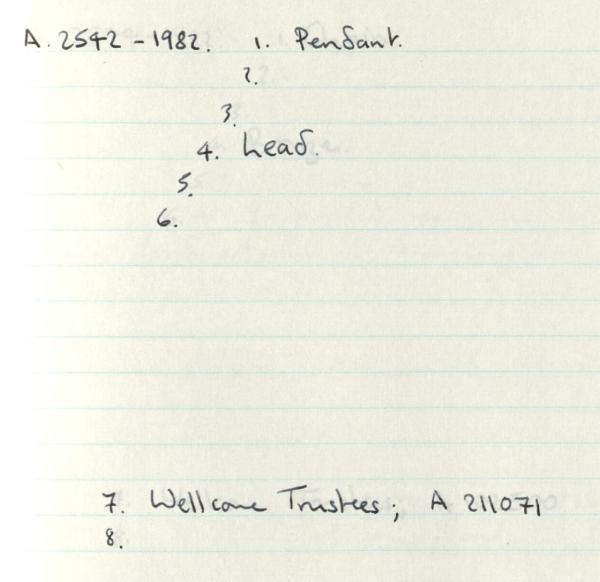 A. 2542 - 1982. 1. Pendant.
2.
3.
4. Lead.
5.
6.
7. Wellcome Trustees; A 211071
8.